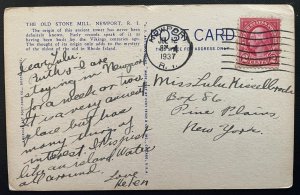 THE OLD STONE MILL, NEWPORT, R. I.
The origin of this ancient tower has never been
definitely known. Early records speak of it as
having been built by the Vikings centuries ago.
The thought of its origin only adds to the mystery
of the oldest of ruins in Rhode Island.
POST CARD
FOR ADDRESS ONLY
1937
R. I.
Dear Lulu,
Ruthy & I are
staying in Newport
for a week or two.
It is a very nice
place but has
many things of
interest. This place
is an island Water
all around.
Love
Helen
Miss Lulu
Box 86
Pine Plains,
New York.